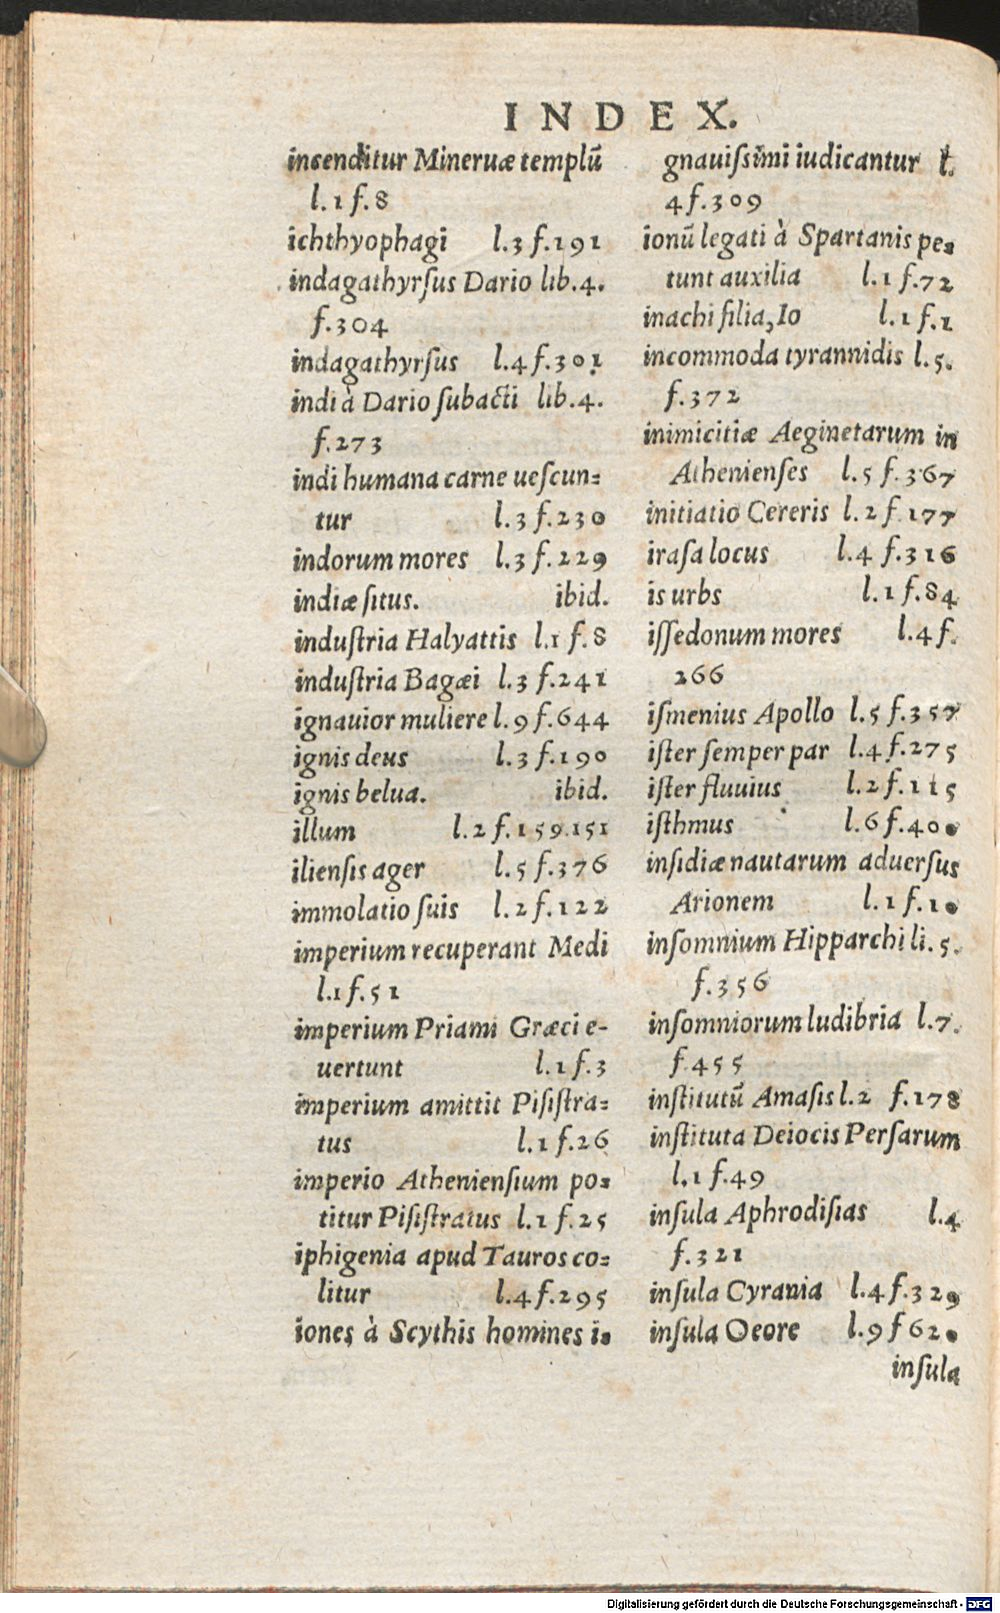 INDEX.
incenditur Mineruæ templū
l.1 f.8
ichthyophagi l.3 f.191
indagathyrſus Dario lib.4.
f.304
indagathyrſus l.4 f.301
indi à Dario ſubacti lib.4.
f.273
indi humana carne ueſcun=
tur l.3 f.230
indorum mores l.3 f.229
indiæ ſitus. ibid.
induſtria Halyattis l.1 f.8
induſtria Bagæi l.3 f.241
ignauior muliere l.9 f.644
ignis deus l.3 f.190
ignis belua. ibid.
illum l.2 f.159.151
ilienſis ager l.5 f.376
immolatio ſuis l.2 f.122
imperium recuperant Medi
l.1 f.51
imperium Priami Græci e-
uertunt l.1 f.3
imperium amittit Piſiſtra=
tus l.1 f.26
imperio Athenienſium po=
titur Piſiſtratus l.1 f.25
iphigenia apud Tauros co=
litur l.4 f.295
iones à Scythis homines i=
gnauiſsimi iudicantur l.
4 f.309
ionū legati à Spartanis pe=
tunt auxilia l.1 f.72
inachi filia, Io l.1 f.1
incommoda tyrannidis l.5.
f.372
inimicitiæ Aeginetarum in
Athenienſes l.5 f.367
initiatio Cereris l.2 f.177
iraſa locus l.4 f.316
is urbs l.1 f.84
iſſedonum mores l.4 f.
266
iſmenius Apollo l.5 f.357
iſter ſemper par l.4 f.275
iſter fluuius l.2 f.115
iſthmus l.6 f.400
inſidiæ nautarum aduerſus
Arionem l.1 f.10
inſomnium Hipparchi li.5.
f.356
inſomniorum ludibria l.7.
f.455
inſtitutū Amaſis l.2 f.178
inſtituta Deiocis Perſarum
l.1 f.49
inſula Aphrodiſias l.4
f.321
inſula Cyrania l.4 f.329
inſula Oeore l.9 f 620
inſula
Digitalisierung gefördert durch die Deutsche Forschungsgemeinschaft - DFG